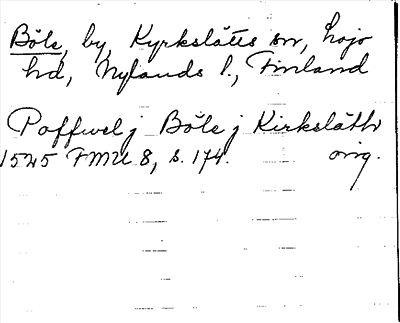 Böle, by, Kyrkslätts sn, Lojo
hd, Nylands l., Finland
Poffwel j Böle j Kirksläth
1525 FMU 8, s. 174. orig.